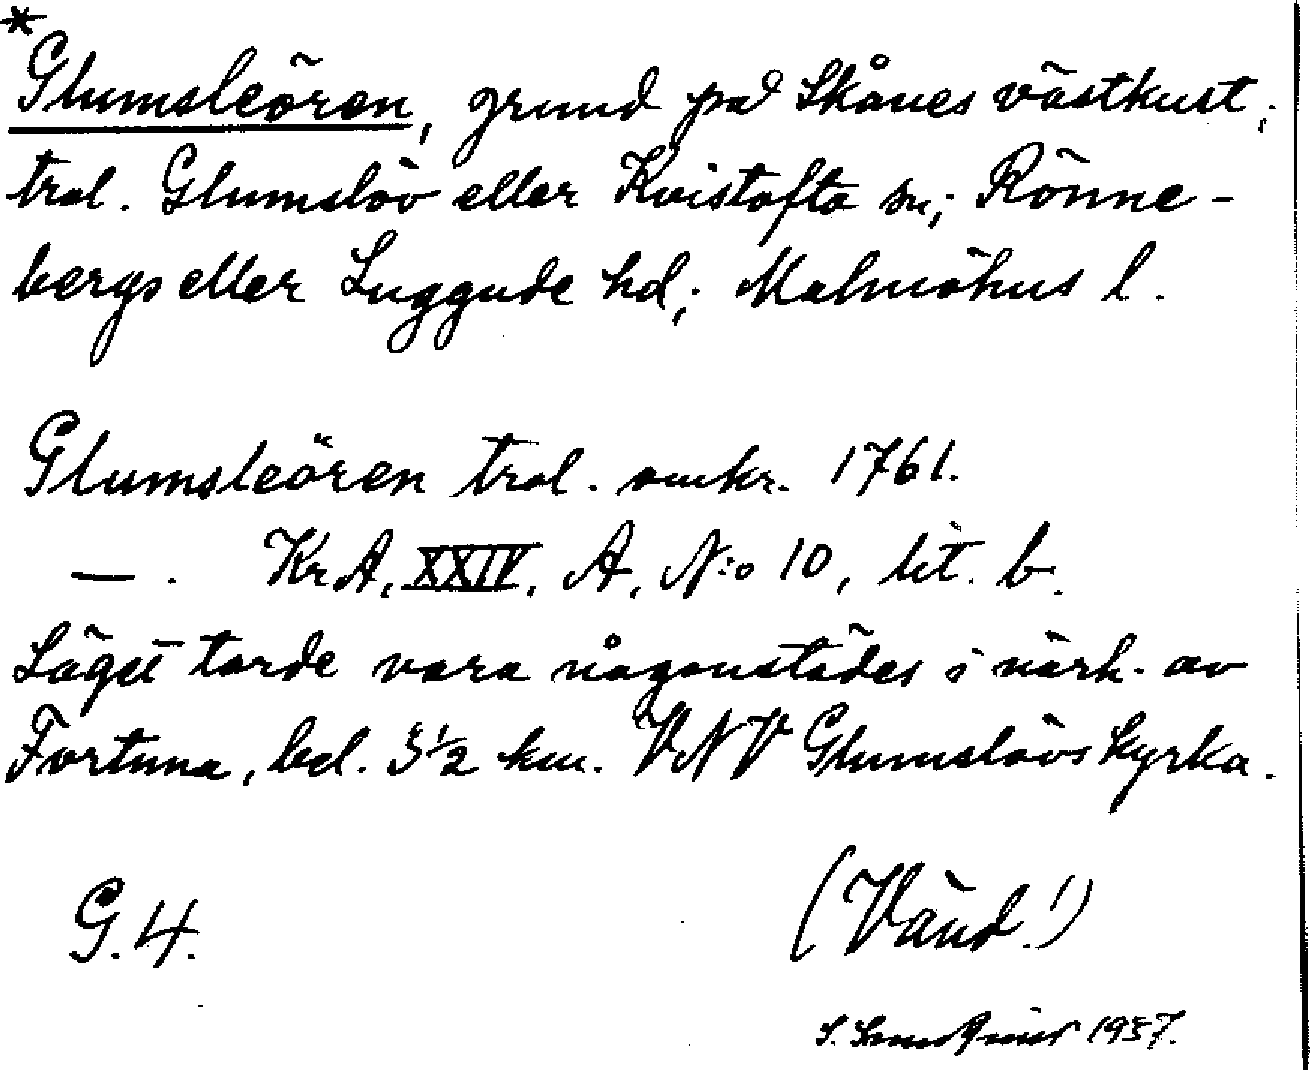 *
Glumsleören, grund på Skånes västkust;
trol. Glumslöv eller Kvistofta sn; Rönne-
bergs eller Luggude hd; Malmöhus l.
Glumsleören trol. omkr. 1761.
— . KrA, XXIV, A, N:o 10, lit. b.
Läget torde vara någonstädes i närh. av
Fortuna, bel. 3 1/2 km. VNV Glumslövs kyrka.
G. 4.
(Vänd!)
S. 1937.